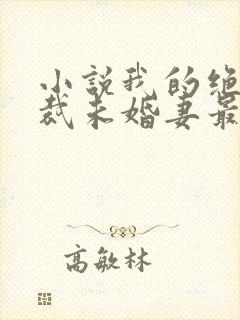 小説我的绝
裁未婚妻最
高敏林